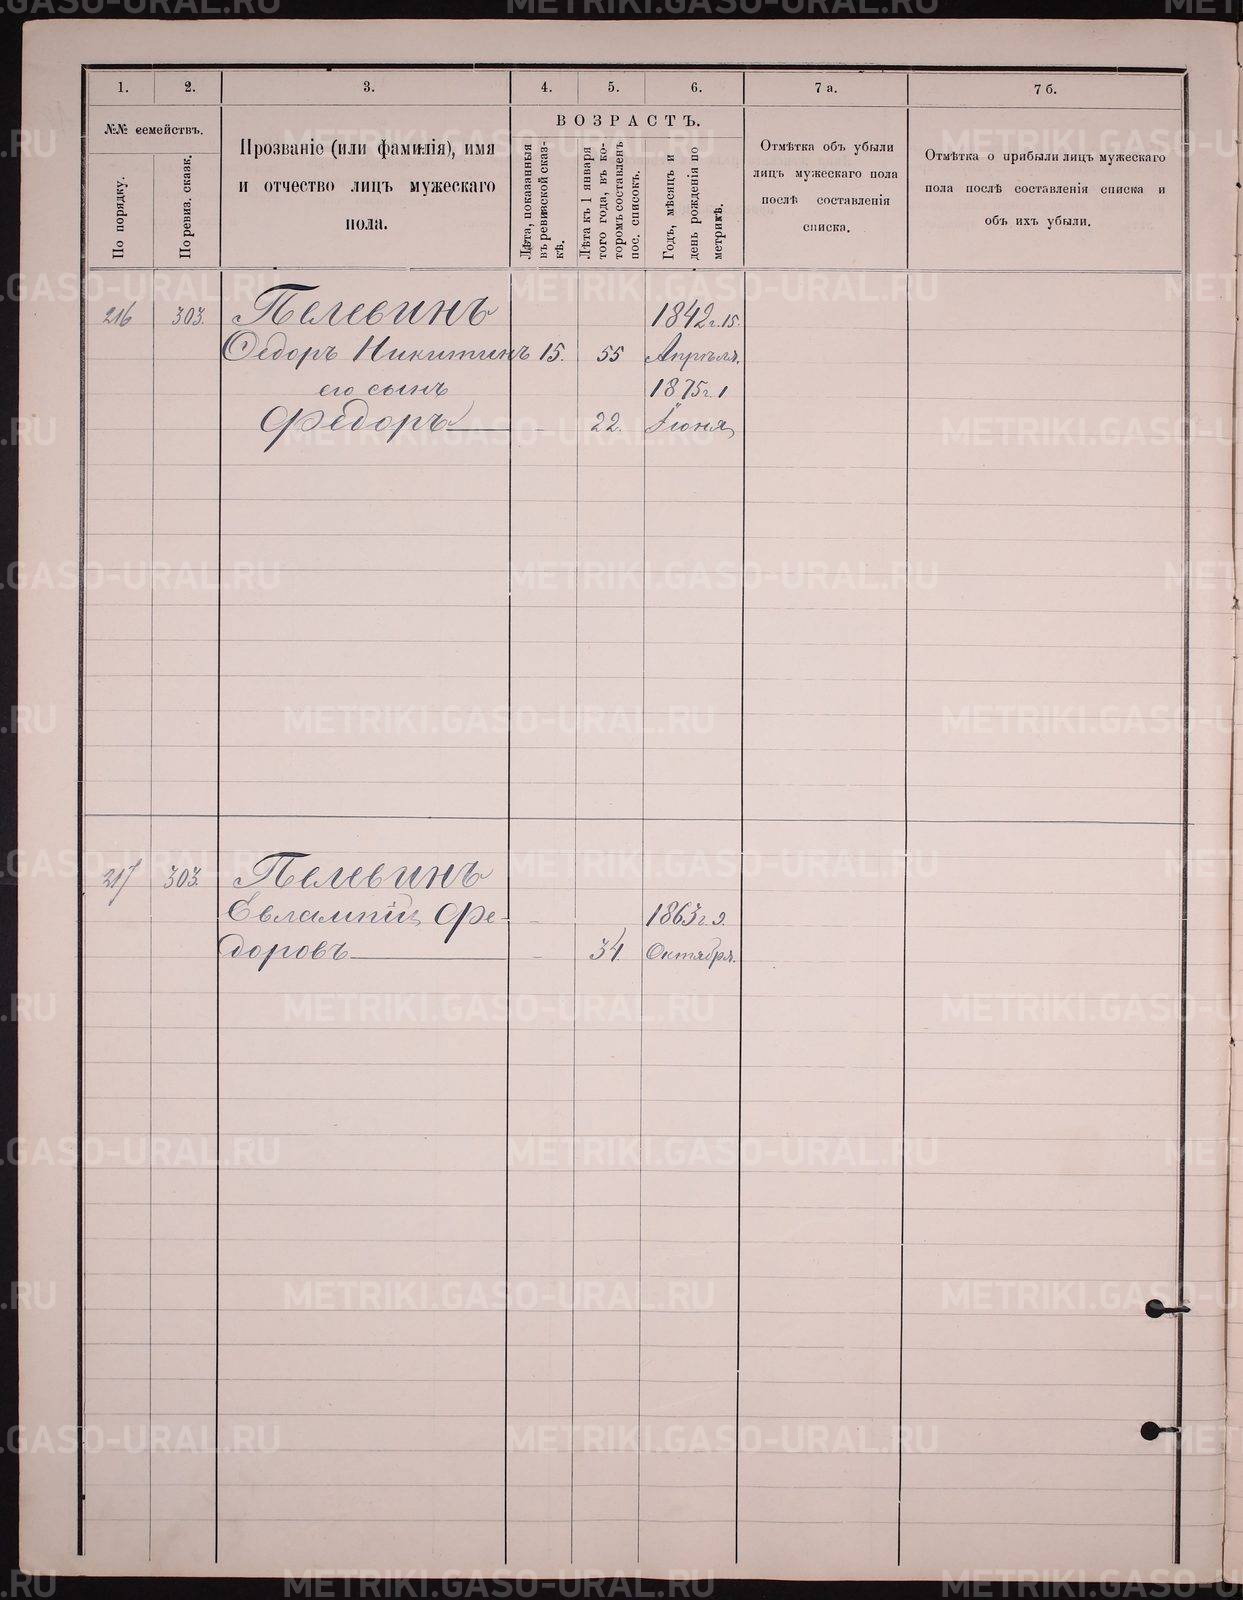 1.
2.
3.
4.
5.
6.
7 а.
7 б.
№№ семействъ.
По порядку.
По ревиз. сказк.
Прозваніе (или фамилія), имя
и отчество лицъ мужескаго
пола.
ВОЗРАСТЪ.
Лѣта, показанныя
въ ревизской сказ-
кѣ.
Лѣта къ 1 января
того года, въ ко-
торомъ составленъ
пос. списокъ.
Годъ, мѣсяцъ и
день рожденія по
метрикѣ.
Отмѣтка объ убыли
лицъ мужескаго пола
послѣ составленія
списка.
Отмѣтка о прибыли лицъ мужескаго
пола послѣ составленія списка и
объ ихъ убыли.
216 303. Пелевинъ 1842 г. 15.
Федоръ Никитинъ 15. 55 Апрѣля.
его сынъ 1875 г. 1
Федоръ 22. Іюня
217 303. Пелевинъ
Евлампій Фе- 1863 г. 9.
доровъ 34. Октября.
METRIKI.GASO-URAL.RU